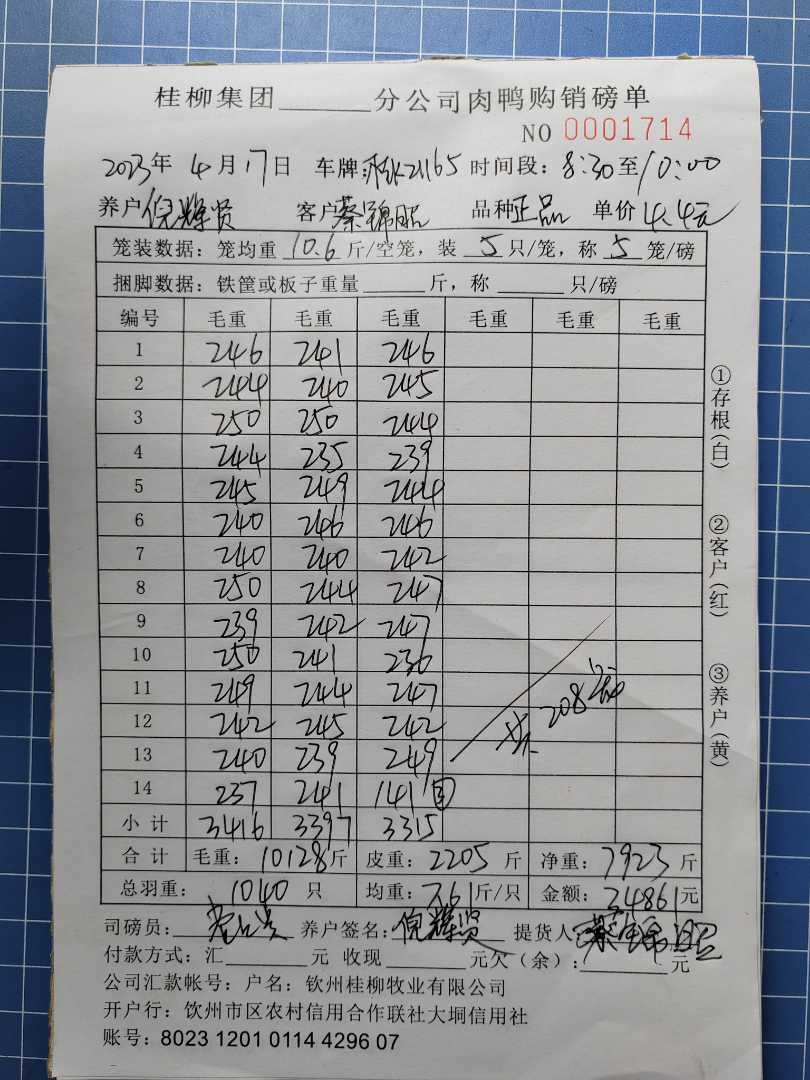 桂柳集团______分公司肉鸭购销磅单
NO 0001714
2023年4月17日 车牌: 21165 时间段: 8:30至10:00
养户倪辉贤 客户蔡锦昭 品种正品 单价4.4元
笼装数据: 笼均重 10.6 斤/空笼, 装 5 只/笼, 称 5 笼/磅
捆脚数据: 铁筐或板子重量______斤, 称______只/磅
编号 毛重 毛重 毛重 毛重 毛重 毛重
1 246 241 246
2 244 240 245
3 250 250 244
4 244 235 239
5 245 249 244
6 240 246 246
7 240 240 242
8 250 244 247
9 239 242 247
10 250 241 236
11 249 244 247
12 242 245 242
13 240 239 249
14 237 241 141 ③
共 208 笼
小计 3416 3397 3315
合计 毛重: 10128斤 皮重: 2205 斤 净重: 7923 斤
总羽重: 1040 只 均重: 7.61斤/只 金额: 34861元
司磅员: 养户签名: 倪辉贤 提货人: 蔡锦昭
付款方式: 汇______元 收现______元欠(余):______元
公司汇款帐号: 户名: 钦州桂柳牧业有限公司
开户行: 钦州市区农村信用合作联社大垌信用社
账号: 8023 1201 0114 4296 07
①存根(白)
②客户(红)
③养户(黄)